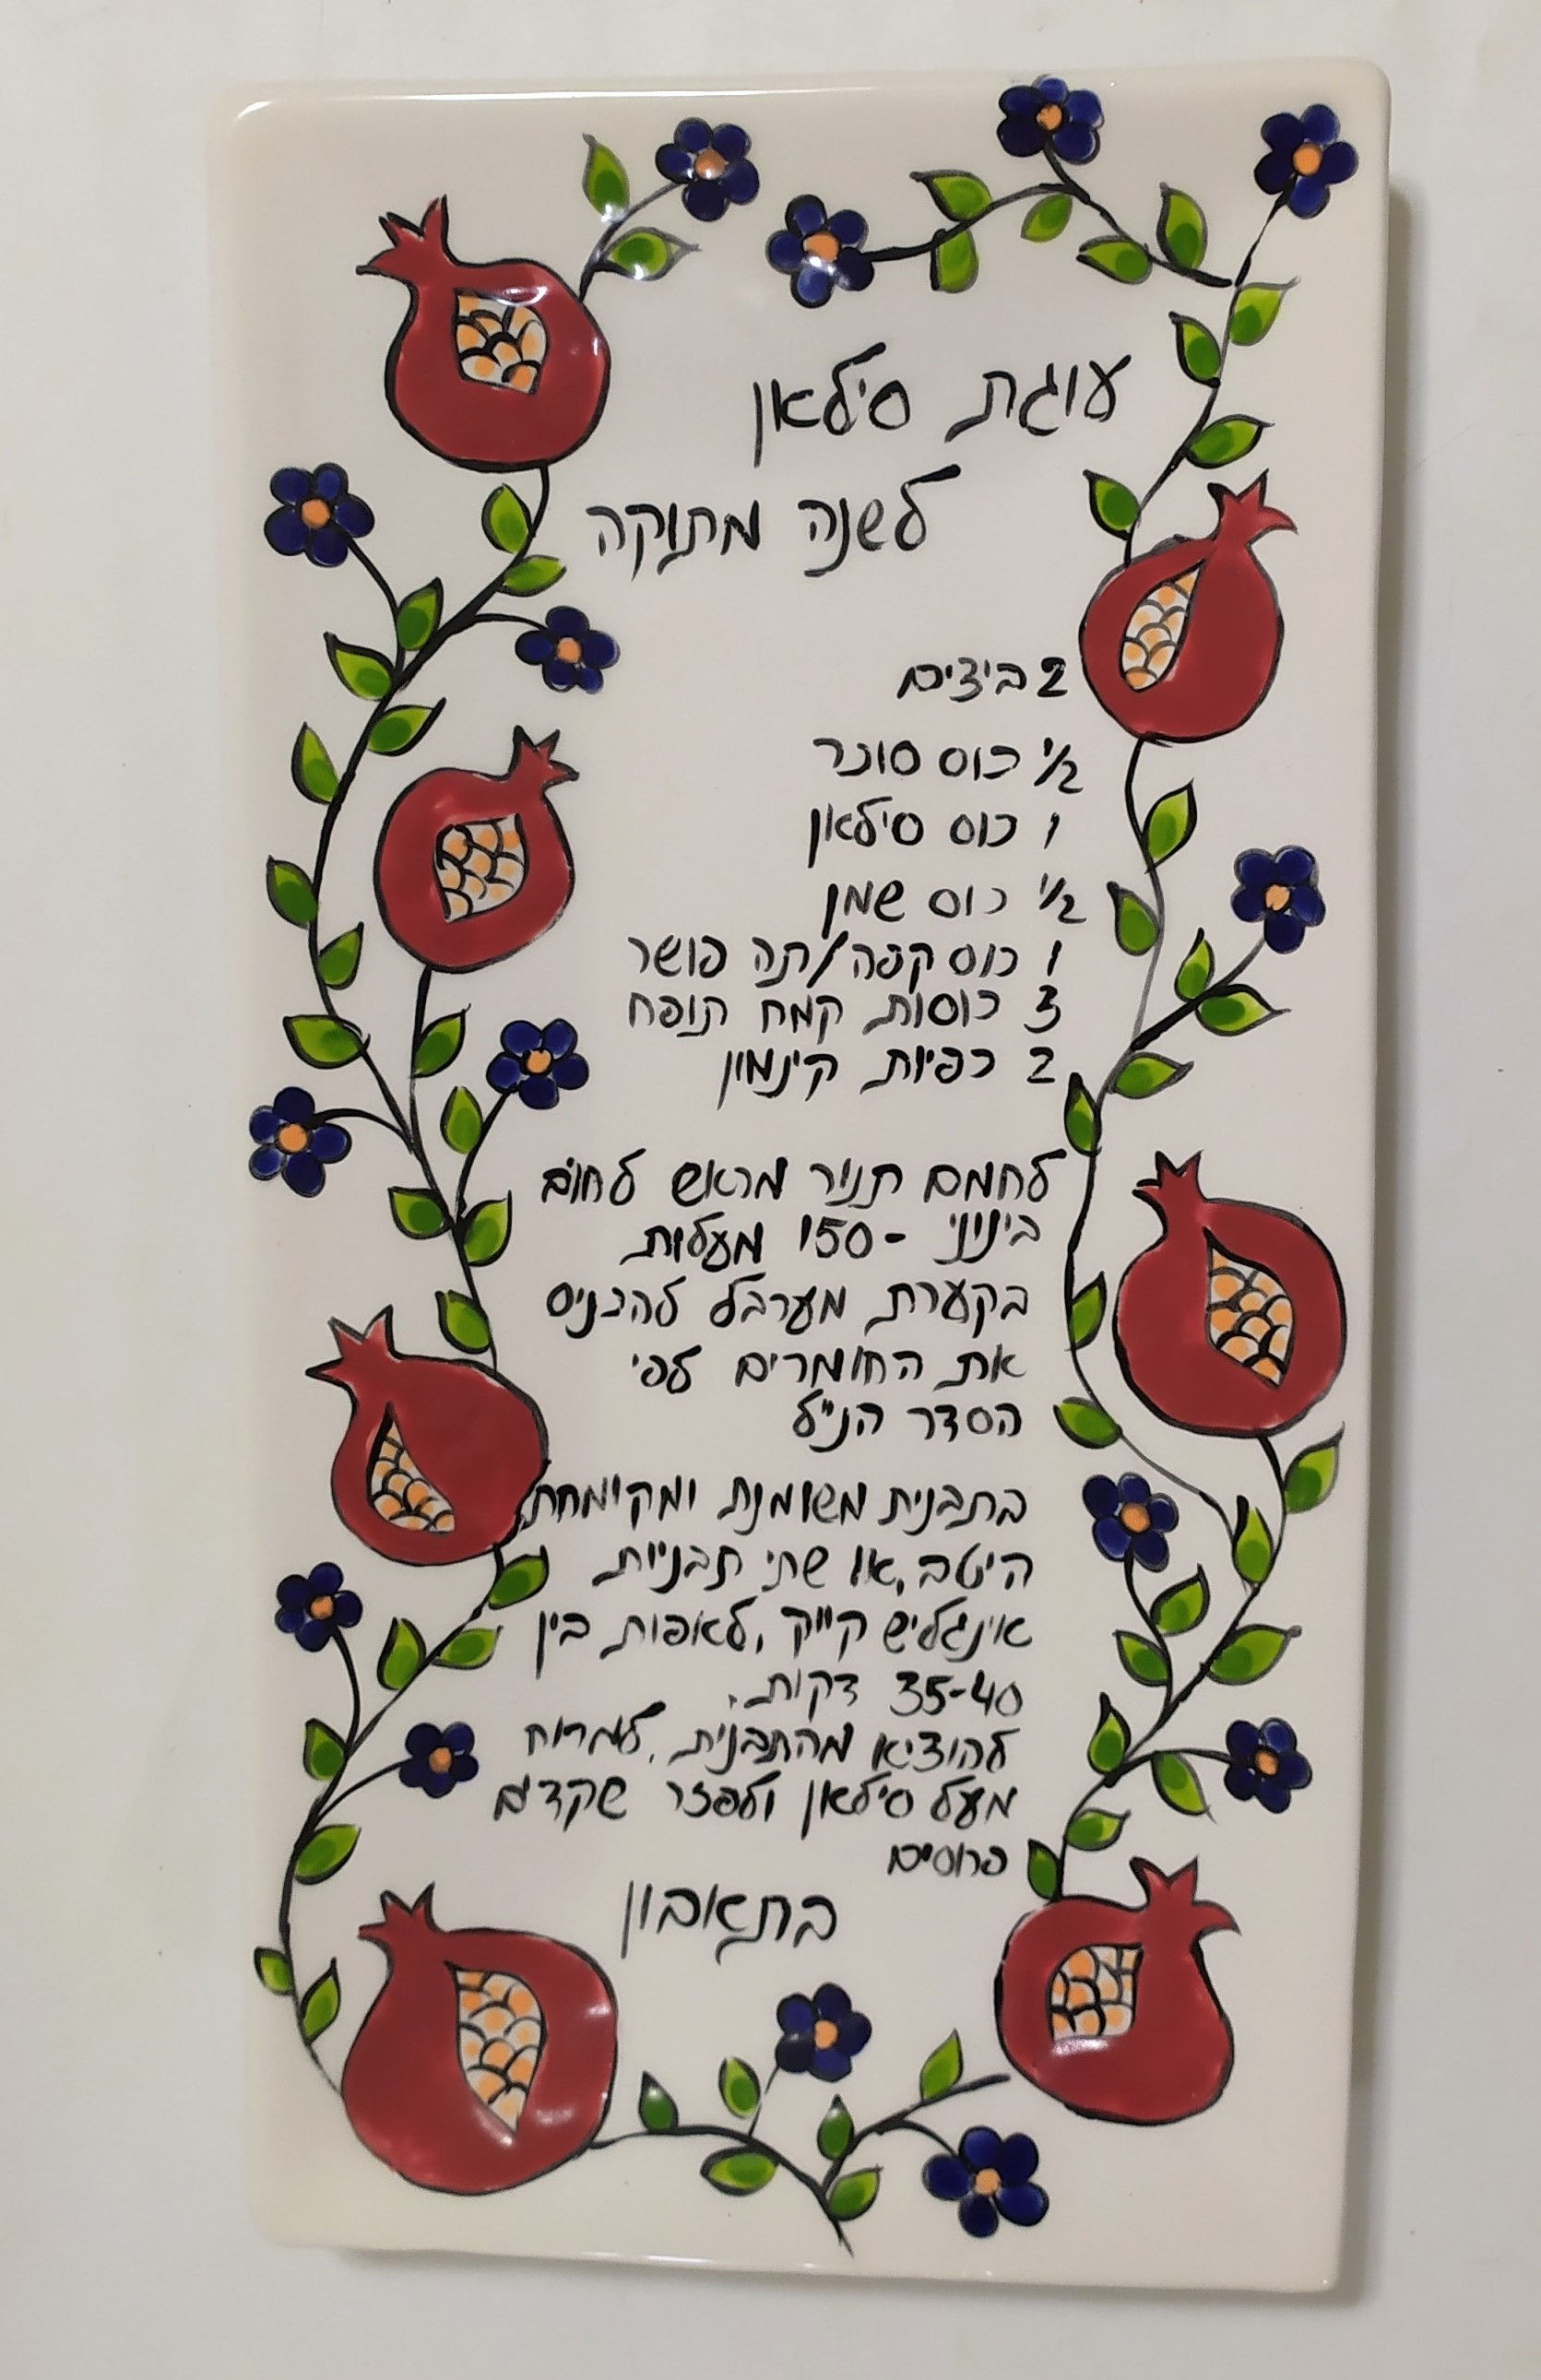 עוגת סילאן
לשנה מתוקה
2 ביצים
1/2 כוס סוכר
1 כוס סילאן
1/2 כוס שמן
1 כוס קפה/תה פושר
3 כוסות קמח תופח
2 כפיות קינמון
לחמם תנור מראש לחום
בינוני -150 מעלות
בקערת מערבל להכניס
את החומרים לפי
הסדר הנ"ל
בתבנית משומנת ומקומחת
היטב, או שתי תבניות
אינגליש קייק, לאפות בין
35-40 דקות.
להוציא מהתבנית, למרוח
מעל סילאן ולפזר שקדים
פרוסים
בתאבון